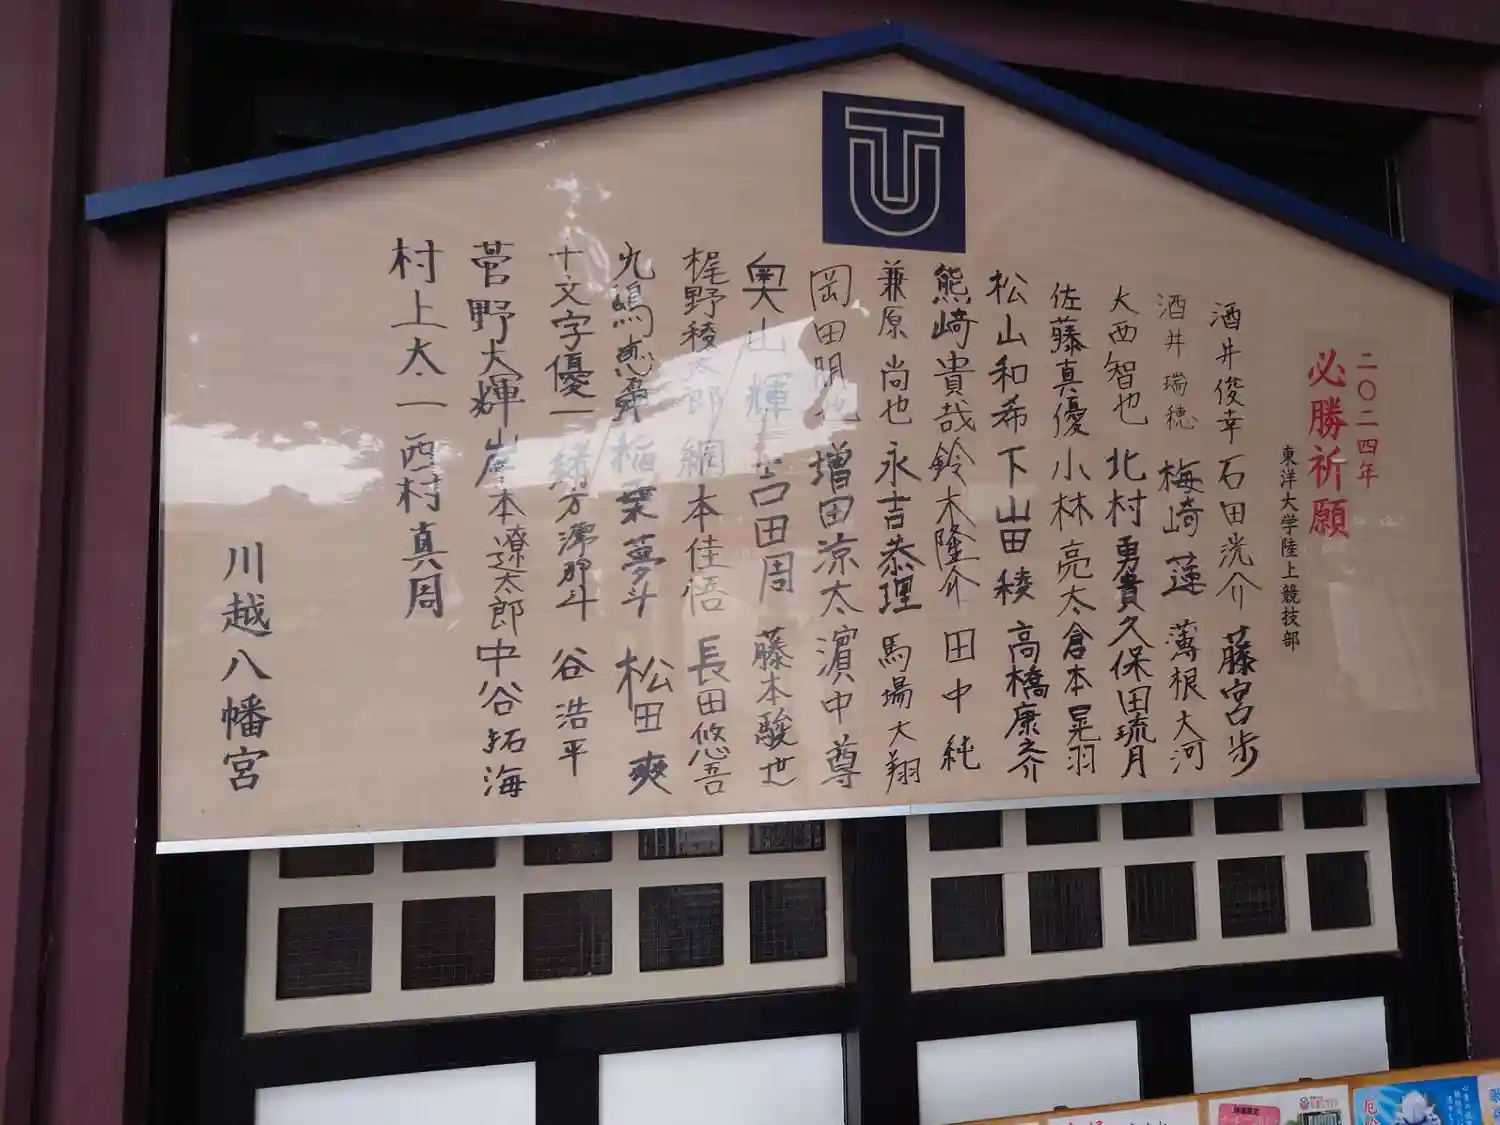 二〇二四年
必勝祈願
東洋大学陸上競技部
酒井俊幸 石田洸介 藤宮歩
酒井瑞穂 梅崎蓮 薄根大河
大西智也 北村勇貴 久保田琉月
佐藤真優 小林亮太 倉本晃羽
松山和希 下山田稜 高橋康之介
熊崎貴哉 鈴木隆介 田中純
兼原尚也 永吉恭理 馬場大翔
岡田朋也 増田涼太 濵中尊
奥山輝 吉田周 藤本駿世
梶野稜太郎 網本佳悟 長田悠吾
九嶋恵舜 稲栗夢斗 松田爽
十文字優一 緒方澪那斗 谷浩平
菅野大輝 岸本遼太郎 中谷拓海
村上太一 西村真周
川越八幡宮
TU